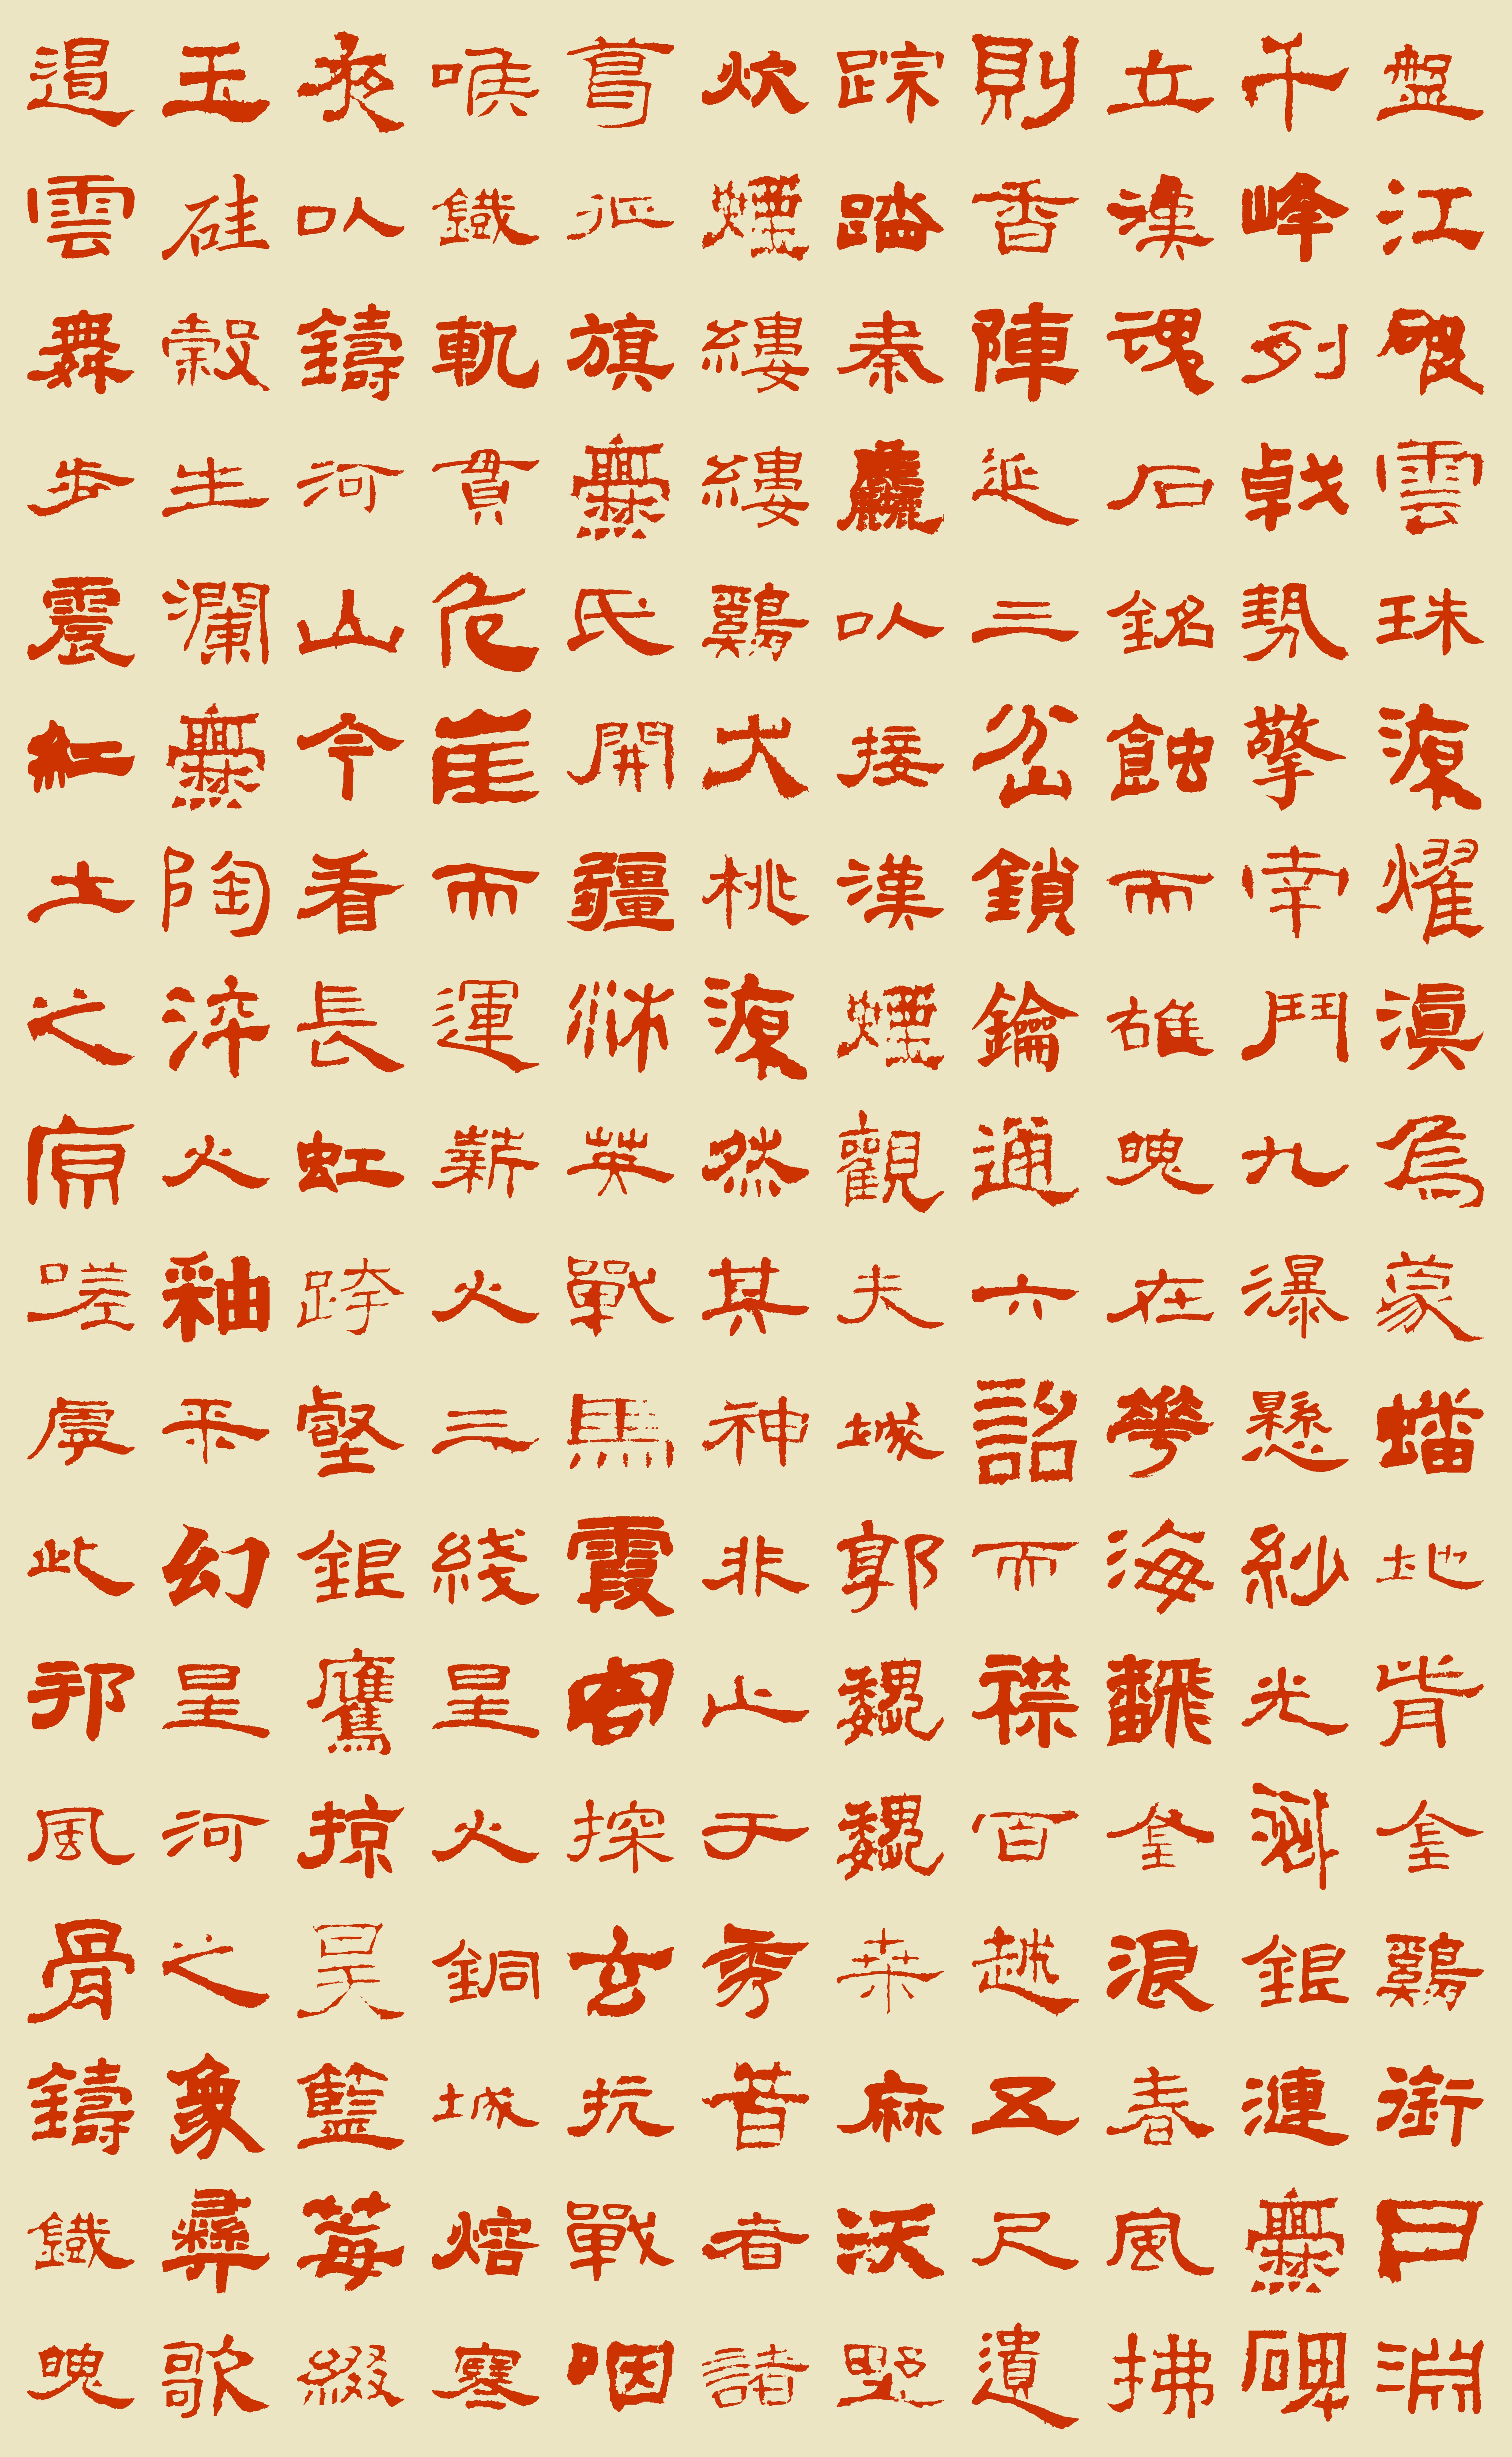 盤江破雲珠源耀滇烏蒙蟠地脊金鷄銜日淵
千峰列戟勢擎南鬥九瀑懸紗光銀漣爨碑
立漢魂石銘蝕而雄魄在花海翻金浪春風拂
則香陣延三岔鎖鑰通六詔而襟百越五尺遺
踪踏秦塵以接漢煙觀夫城郭巍巍桑麻沃野
炊煙縷縷鷄犬桃源然其神非止于秀昔者諸
葛征旗爨氏開疆沐英戰馬霞客探玄抗戰咽
喉鐵軌貫危崖而運薪火三綫星火銅城熔寒
夜以鑄河山今看長虹跨壑銀鷹掠昊藍莓綴
玉硅穀生瀾爨陶淬火釉采幻星河之象彝歌
遏雲舞步震紅土之原嗟乎此邦風骨鑄鐵魄